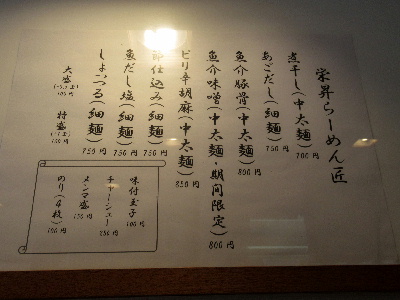 栄昇らーめん匠
煮干し(中太麺) 700円
あごだし(細麺) 750円
魚介豚骨(中太麺) 800円
魚介味噌(中太麺・期間限定) 800円
ピリ辛胡麻(中太麺) 850円
仕込み(細麺) 750円
魚だし塩(細麺) 750円
しょっつる(細麺) 750円
大盛 100円
特盛
味付玉子 100円
チャーシュー 250円
メンマ盛 150円
のり(4枚) 100円